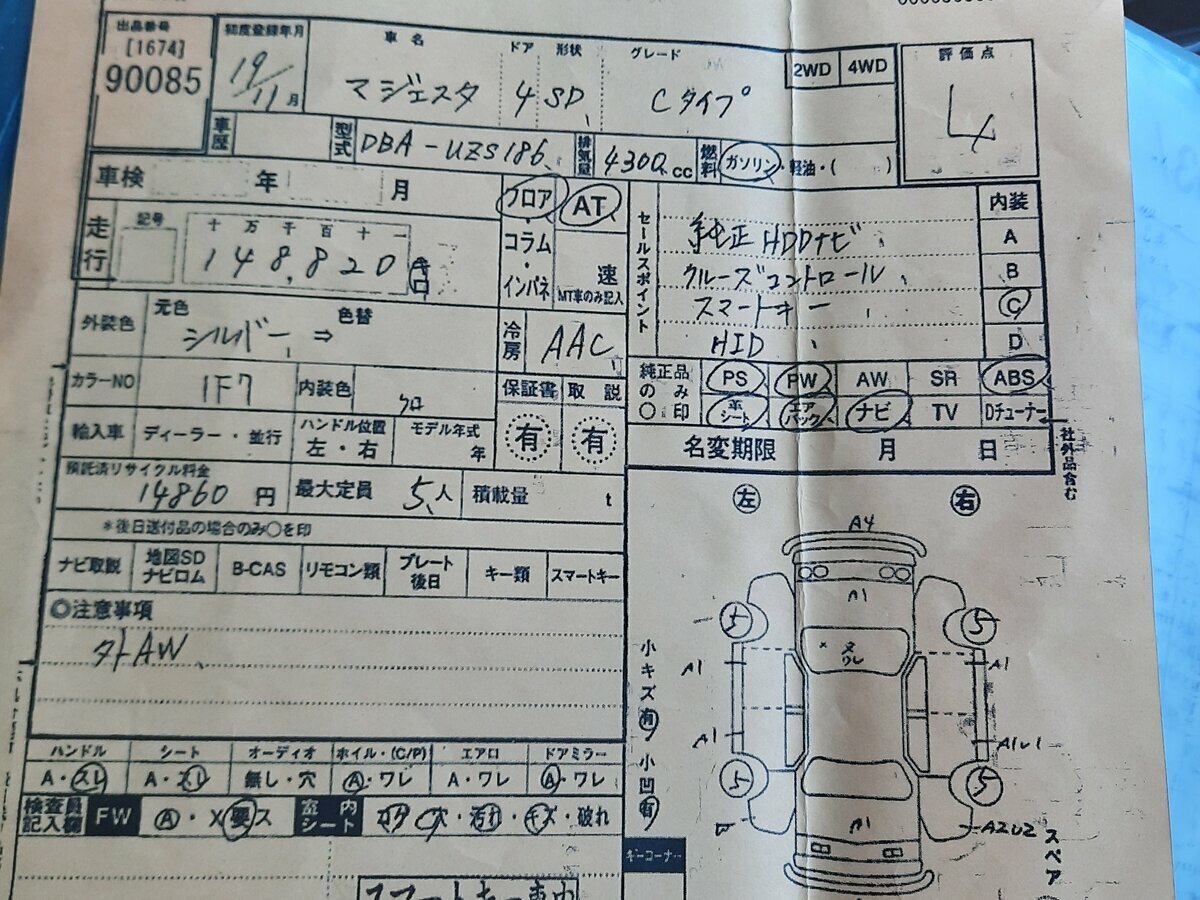 出品番号
[1674]
90085
初度登録年月
19/11月
車名 ドア 形状 グレード
マジェスタ 4 SD Cタイプ
2WD 4WD
評価点
4
車歴
型式 DBA-UZS186
排気量 4300cc
燃料 ガソリン・軽油・( )
車検 年 月
走行
記号 十万千百十一
148,820
フロア・コラム・インパネ
AT
速
MT車のみ記入
セールスポイント
純正HDDナビ
クルーズコントロール
スマートキー
HID
内装
A
B
C
D
外装色
元色 シルバー ⇒ 色替
冷房 AAC
カラーNO 1F7 内装色 クロ
保証書 取説
有 有
純正品のみ○印
PS PW AW SR ABS
革シート エアバック ナビ TV Dチューナー
社外品含む
輸入車 ディーラー・並行
ハンドル位置
左・右
モデル年式
年
名変期限 月 日
預託済リサイクル料金
14860円
最大定員 5人 積載量 t
*後日送付品の場合のみ○を印
ナビ取説 地図SDナビロム B-CAS リモコン類 プレート後日 キー類 スマートキー
◎注意事項
外AW
左 右
A4
A1
5 5
ワレ
A1 A1
A1 A1U1
5 5
A1
A2U2
小キズ有 小凹有
スペア
ハンドル シート オーディオ ホイル・(C/P) エアロ ドアミラー
A・スレ A・スレ 無し・穴 A・ワレ A・ワレ A・ワレ
検査員記入欄 FW A・X要ス
室内シート コゲ穴・汚れ・キズ・破れ
キーコーナー
スマートキー車内